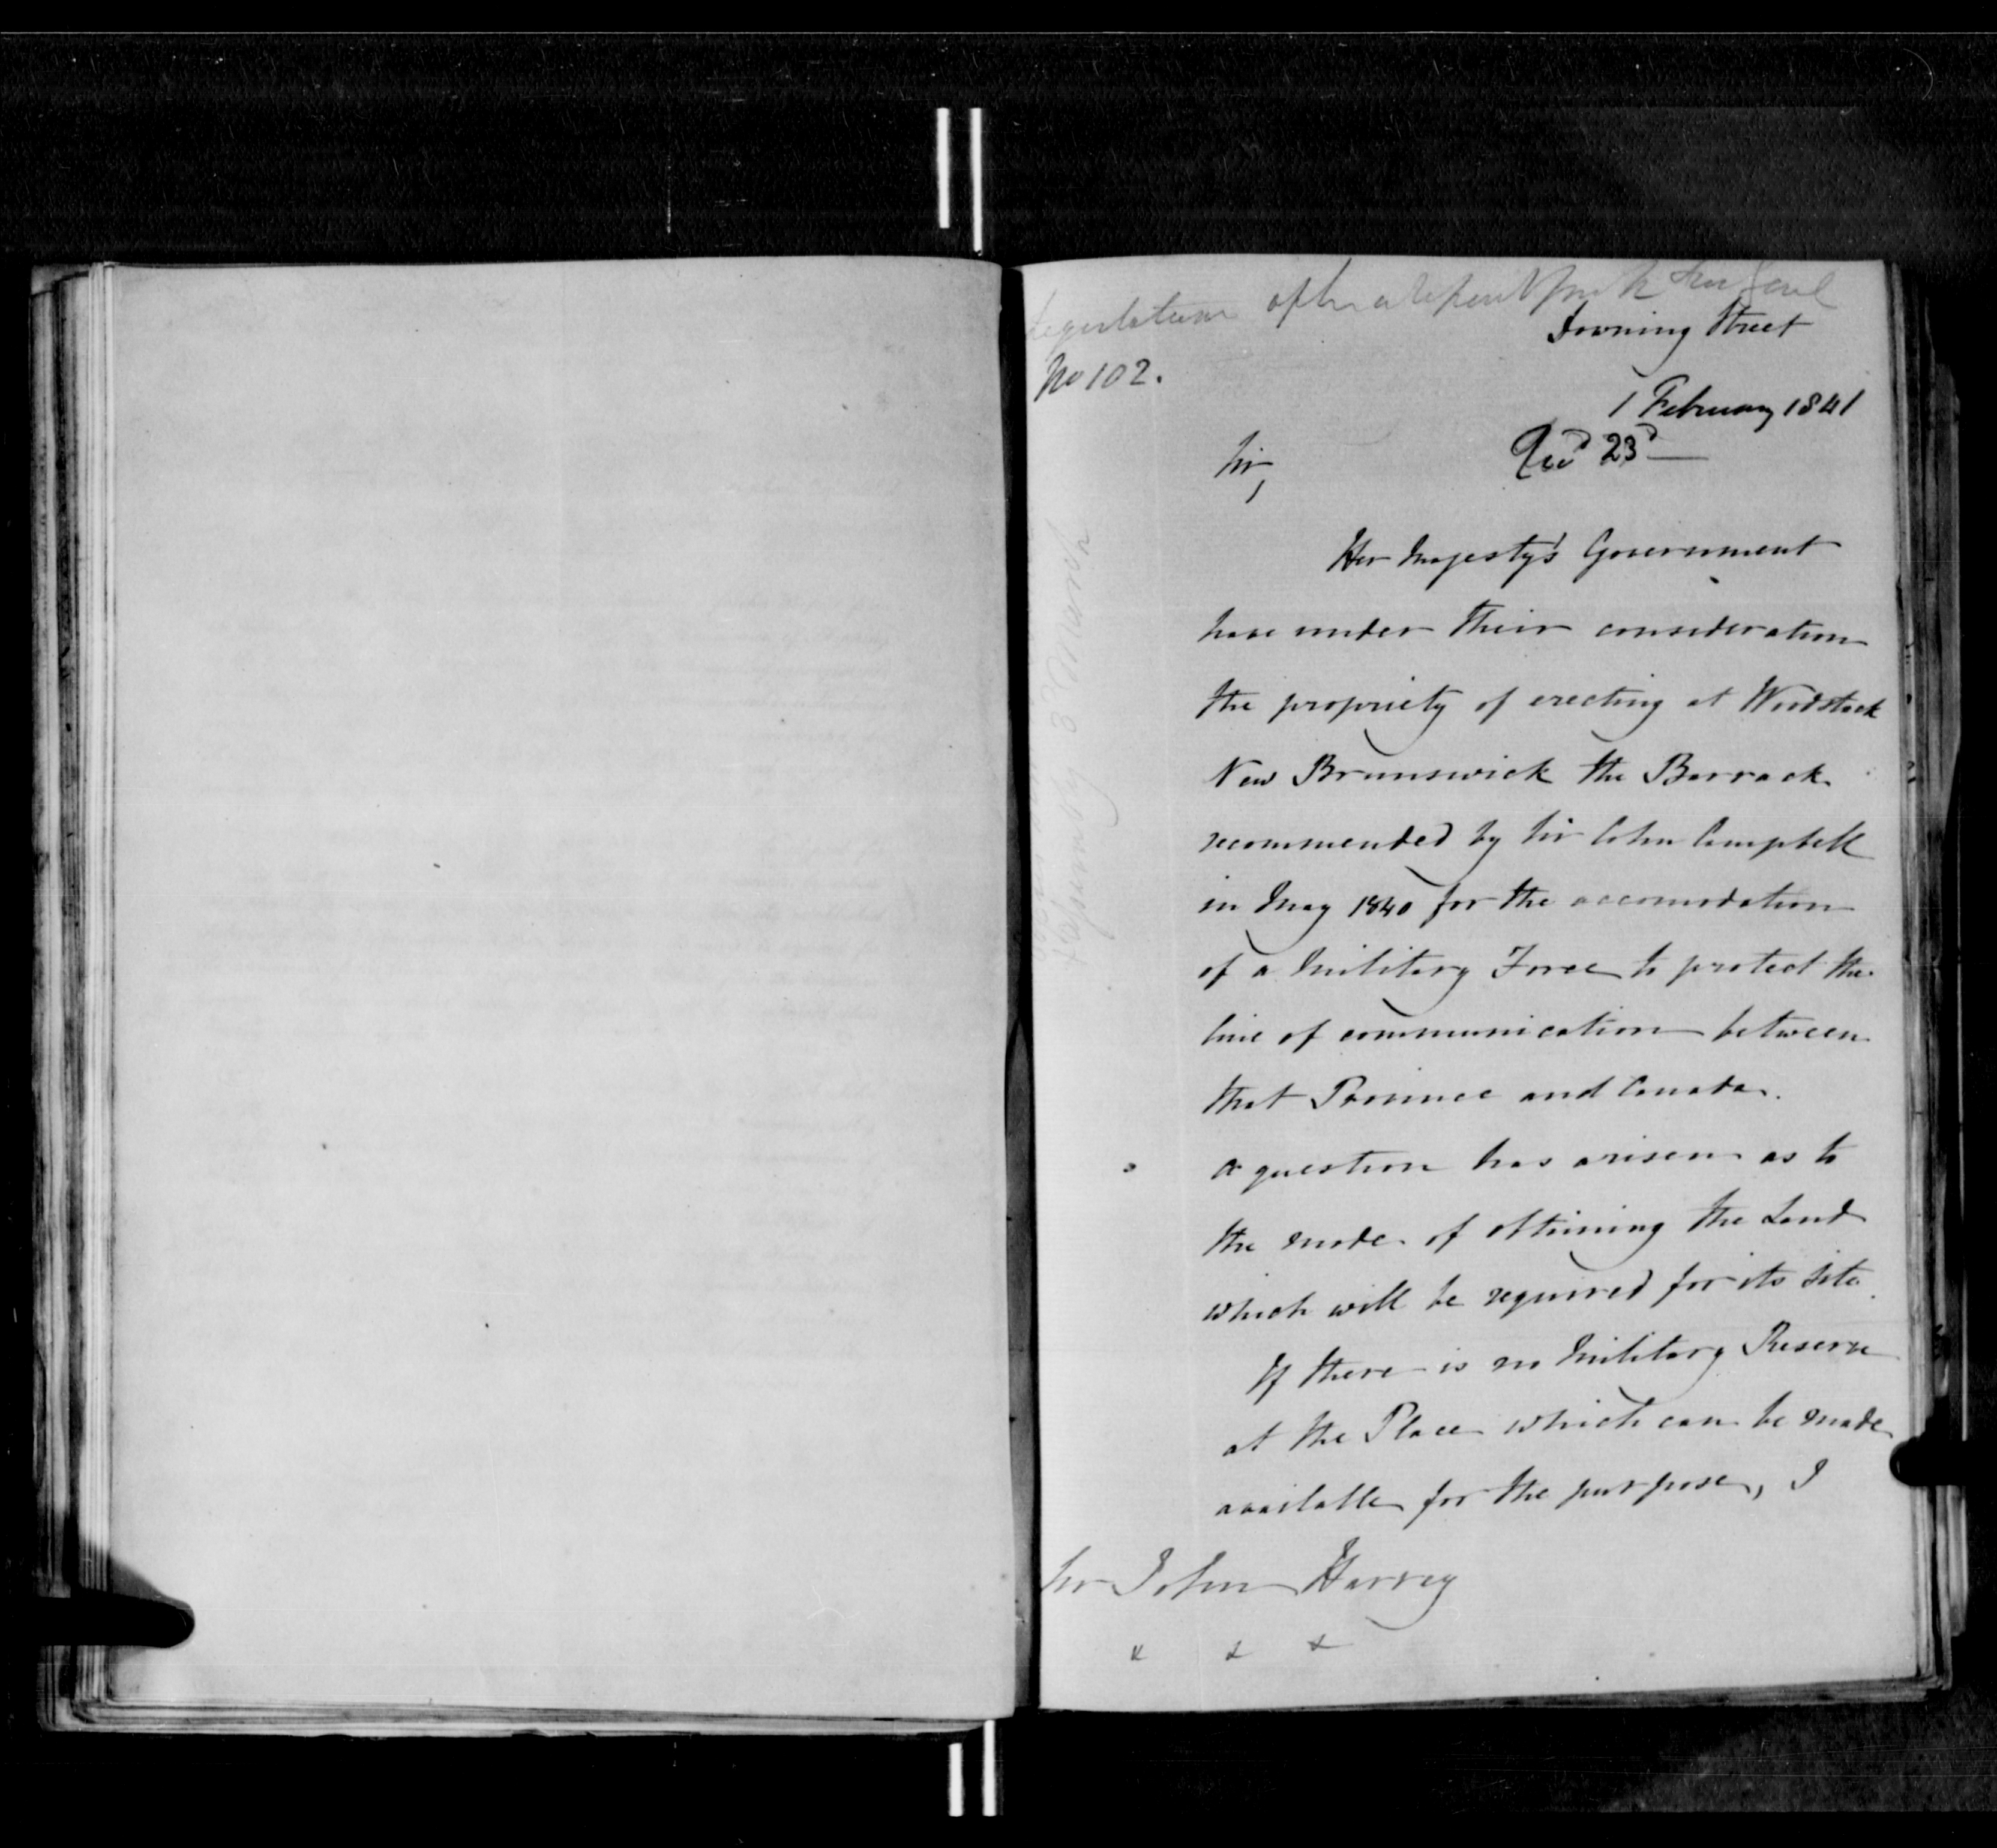 Legislature after a
Downing Street
No 102.
1 February 1841
Recd 23d
Sir,
Her Majesty's Government
have under their consideration
the propriety of erecting at Woodstock
New Brunswick the Barrack
recommended by Sir Colin Campbell
in May 1840 for the accomodation
of a Military Force to protect the
line of communication between
that Province and Canada.
A question has arisen as to
the mode of obtaining the Land
which will be required for its site.
If there is no Military Reserve
at the Place which can be made
available for the purpose, I
Sir John Harvey
x x x
3 March